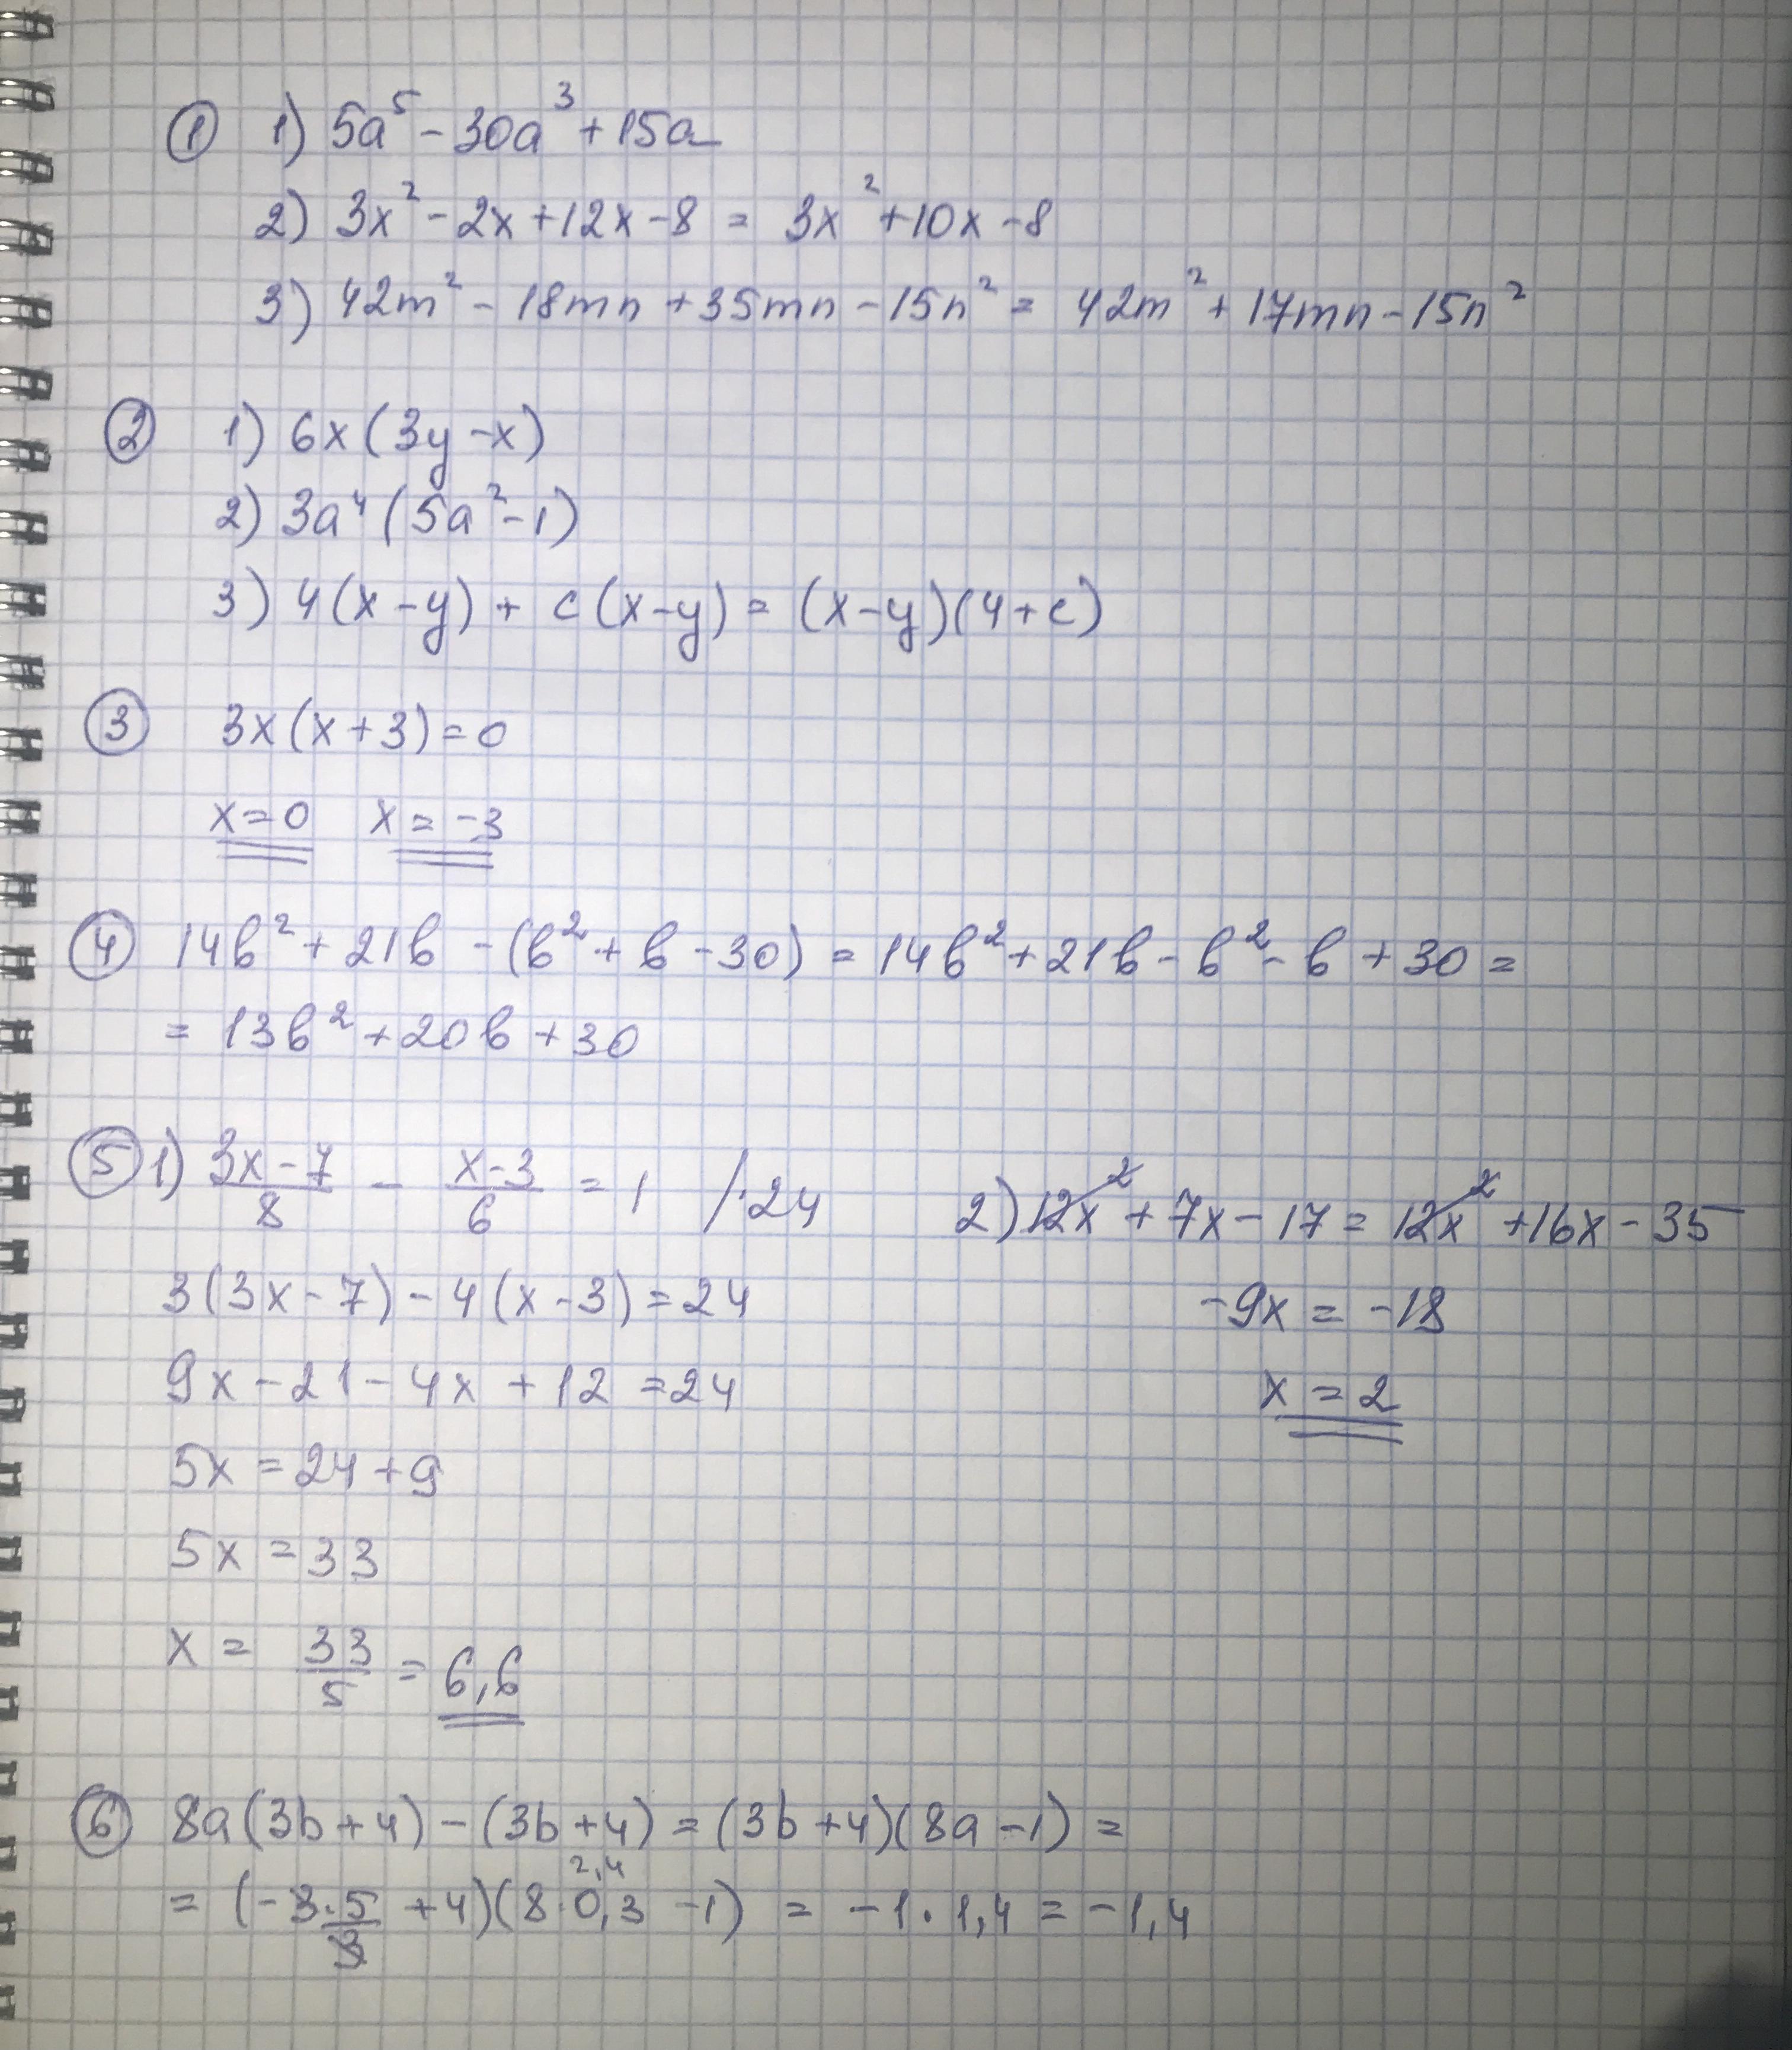 ① 1) 5a⁵ - 30a³ + 15a
2) 3x² - 2x + 12x - 8 = 3x² + 10x - 8
3) 42m² - 18mn + 35mn - 15n² = 42m² + 17mn - 15n²
② 1) 6x(3y - x)
2) 3a⁴(5a² - 1)
3) 4(x - y) + c(x - y) = (x - y)(4 + c)
③ 3x(x + 3) = 0
x = 0 x = -3
④ 14b² + 21b - (b² + b - 30) = 14b² + 21b - b² - b + 30 =
= 13b² + 20b + 30
⑤ 1) (3x - 7)/8 - (x - 3)/6 = 1 /·24
3(3x - 7) - 4(x - 3) = 24
9x - 21 - 4x + 12 = 24
5x = 24 + 9
5x = 33
x = 33/5 = 6,6
2) 12x² + 7x - 17 = 12x² + 16x - 35
-9x = -18
x = 2
⑥ 8a(3b + 4) - (3b + 4) = (3b + 4)(8a - 1) =
2,4
= (-3·5/3 + 4)(8·0,3 - 1) = -1·1,4 = -1,4